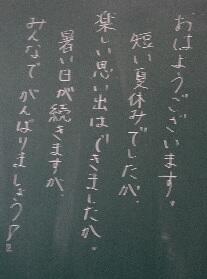 おはようございます。
短い夏休みでしたが、
楽しい思い出はできましたか。
暑い日が続きますが、
みんなで がんばりましょう!!